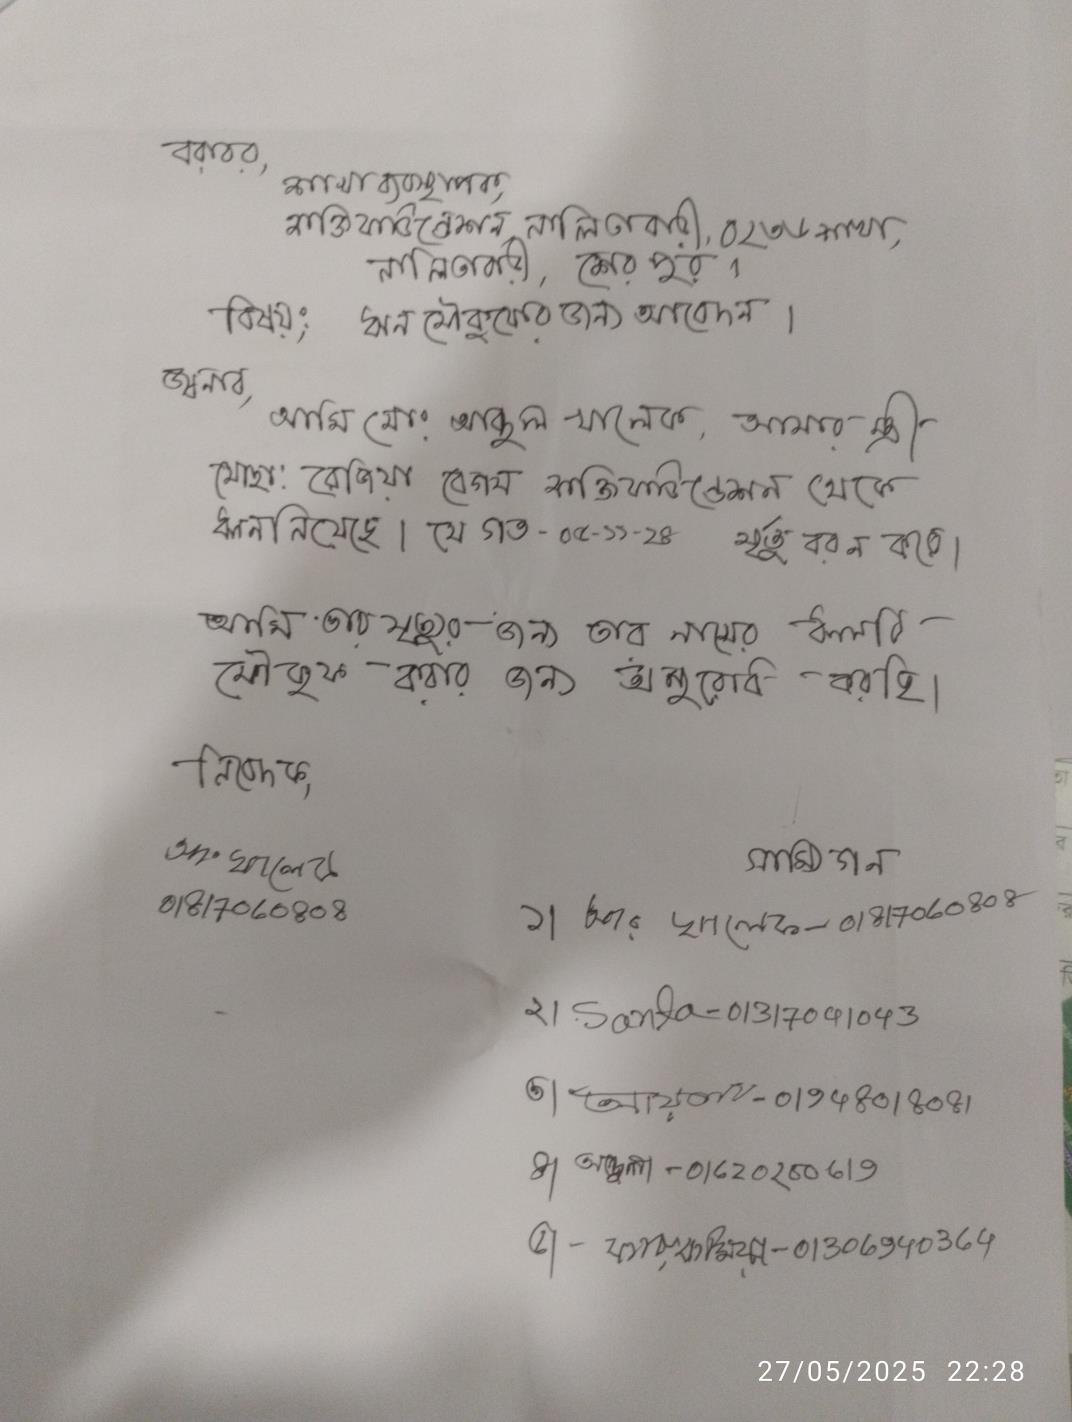 বরাবর,
শাখা ব্যবস্থাপক,
শক্তি ফাউন্ডেশন, নালিতাবাড়ী, ০২৩৮ শাখা,
নালিতাবাড়ী, শেরপুর।
বিষয়: ঋন মৌকুফের জন্য আবেদন।
জনাব,
আমি মোঃ আব্দুল খালেক, আমার স্ত্রী
মোছা: রেজিয়া বেগম শক্তি ফাউন্ডেশন থেকে
ঋন নিয়েছে। যে গত - ০৫-১১-২৪ মৃত্যু বরন করে।
আমি তার মৃত্যুর জন্য তার নামের ঋনটি
মৌকুফ করার জন্য অনুরোধ করছি।
নিবেদক,
আঃ খালেক
01817060808
সাক্ষিগন
১। আঃ খালেক - 01817060808
২। Santa - 01317041043
৩। - 01948018081
৪। - 01620250619
৫। - ফারুক মিয়া - 01306940364
27/05/2025 22:28